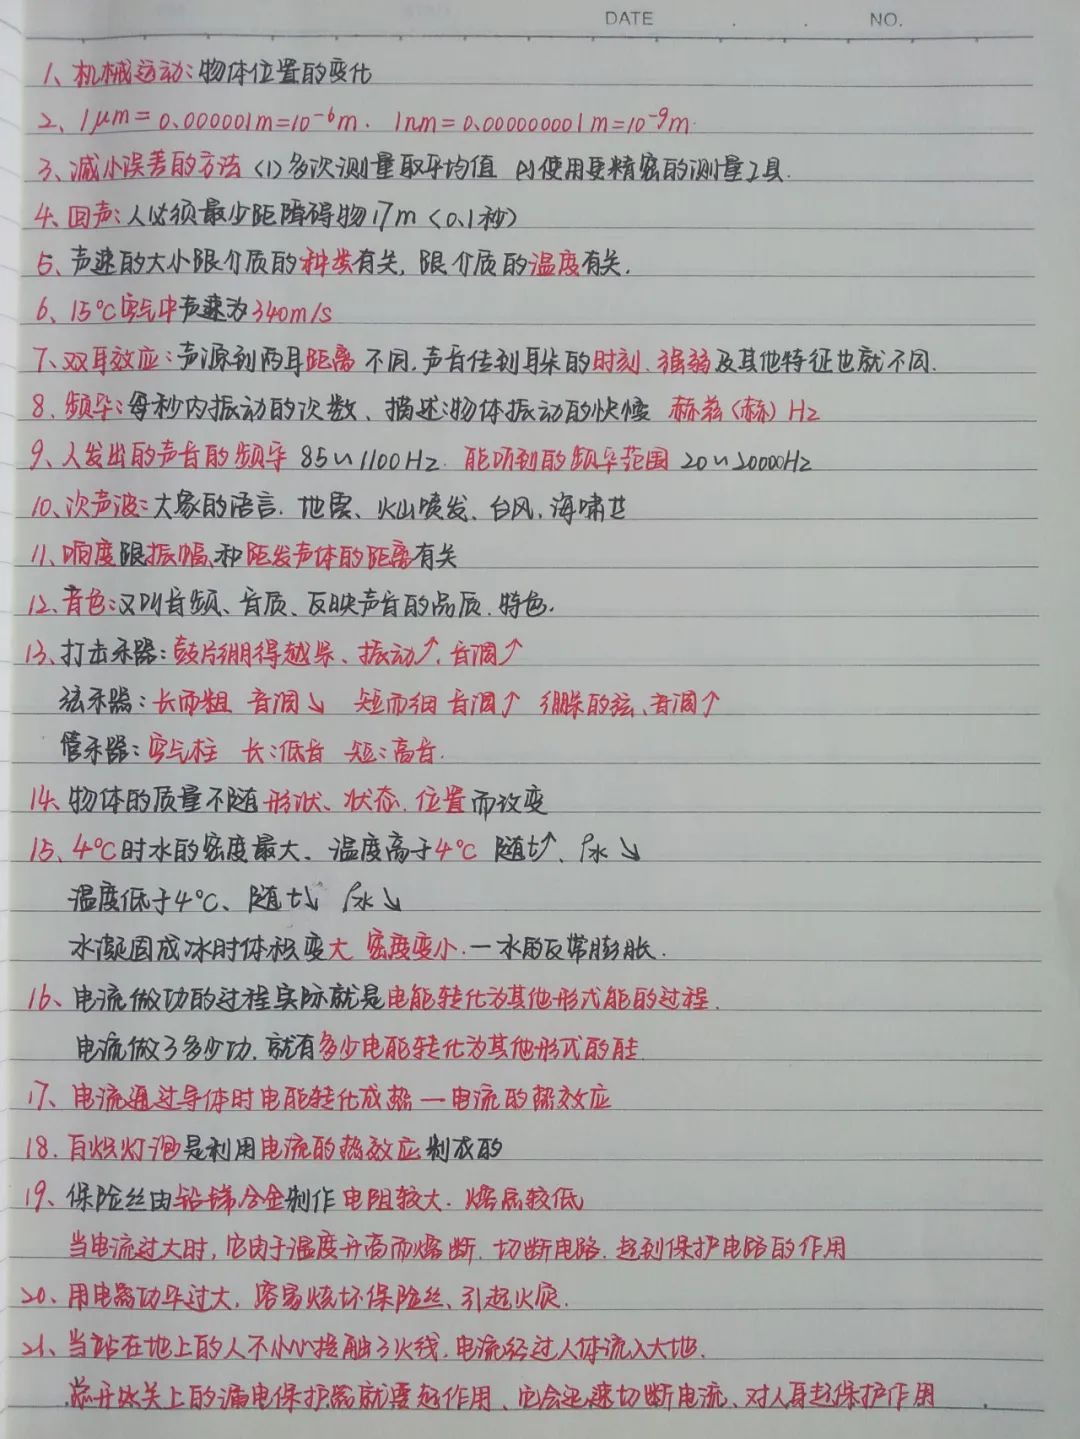 DATE . . NO.
1、机械运动：物体位置的变化
2、1μm=0.000001m=10⁻⁶m. 1nm=0.000000001m=10⁻⁹m.
3、减小误差的方法（1）多次测量取平均值 (2)使用更精密的测量工具.
4、回声：人必须最少距障碍物17m（0.1秒）
5、声速的大小跟介质的种类有关，跟介质的温度有关.
6、15℃空气中声速为340m/s
7、双耳效应：声源到两耳距离不同.声音传到耳朵的时刻、强弱及其他特征也就不同.
8、频率：每秒内振动的次数、描述：物体振动的快慢 赫兹（赫）Hz
9、人发出的声音的频率 85~1100Hz. 能听到的频率范围 20~20000Hz
10、次声波：大象的语言. 地震、火山喷发、台风、海啸中
11、响度跟振幅、和距发声体的距离有关
12、音色：又叫音频、音质、反映声音的品质、特色.
13、打击乐器：鼓皮绷得越紧、振动↑、音调↑
弦乐器：长而粗 音调↘ 短而细 音调↑ 绷紧的弦、音调↑
管乐器：空气柱 长：低音 短：高音.
14、物体的质量不随形状、状态、位置而改变
15、4℃时水的密度最大、温度高于4℃ 随t↑、ρ水↘
温度低于4℃、随t↓ ρ水↘
水凝固成冰时体积变大 密度变小.—水的反常膨胀.
16、电流做功的过程实际就是电能转化为其他形式能的过程.
电流做了多少功、就有多少电能转化为其他形式的能
17、电流通过导体时电能转化成热—电流的热效应
18、白炽灯泡是利用电流的热效应制成的
19、保险丝由铅锑合金制作 电阻较大. 熔点较低
当电流过大时，它由于温度升高而熔断、切断电路、起到保护电路的作用
20、用电器功率过大，容易烧坏保险丝、引起火灾.
21、当站在地上的人不小心接触了火线，电流经过人体流入大地、
总开关上的漏电保护器就要起作用、它会迅速切断电流、对人身起保护作用